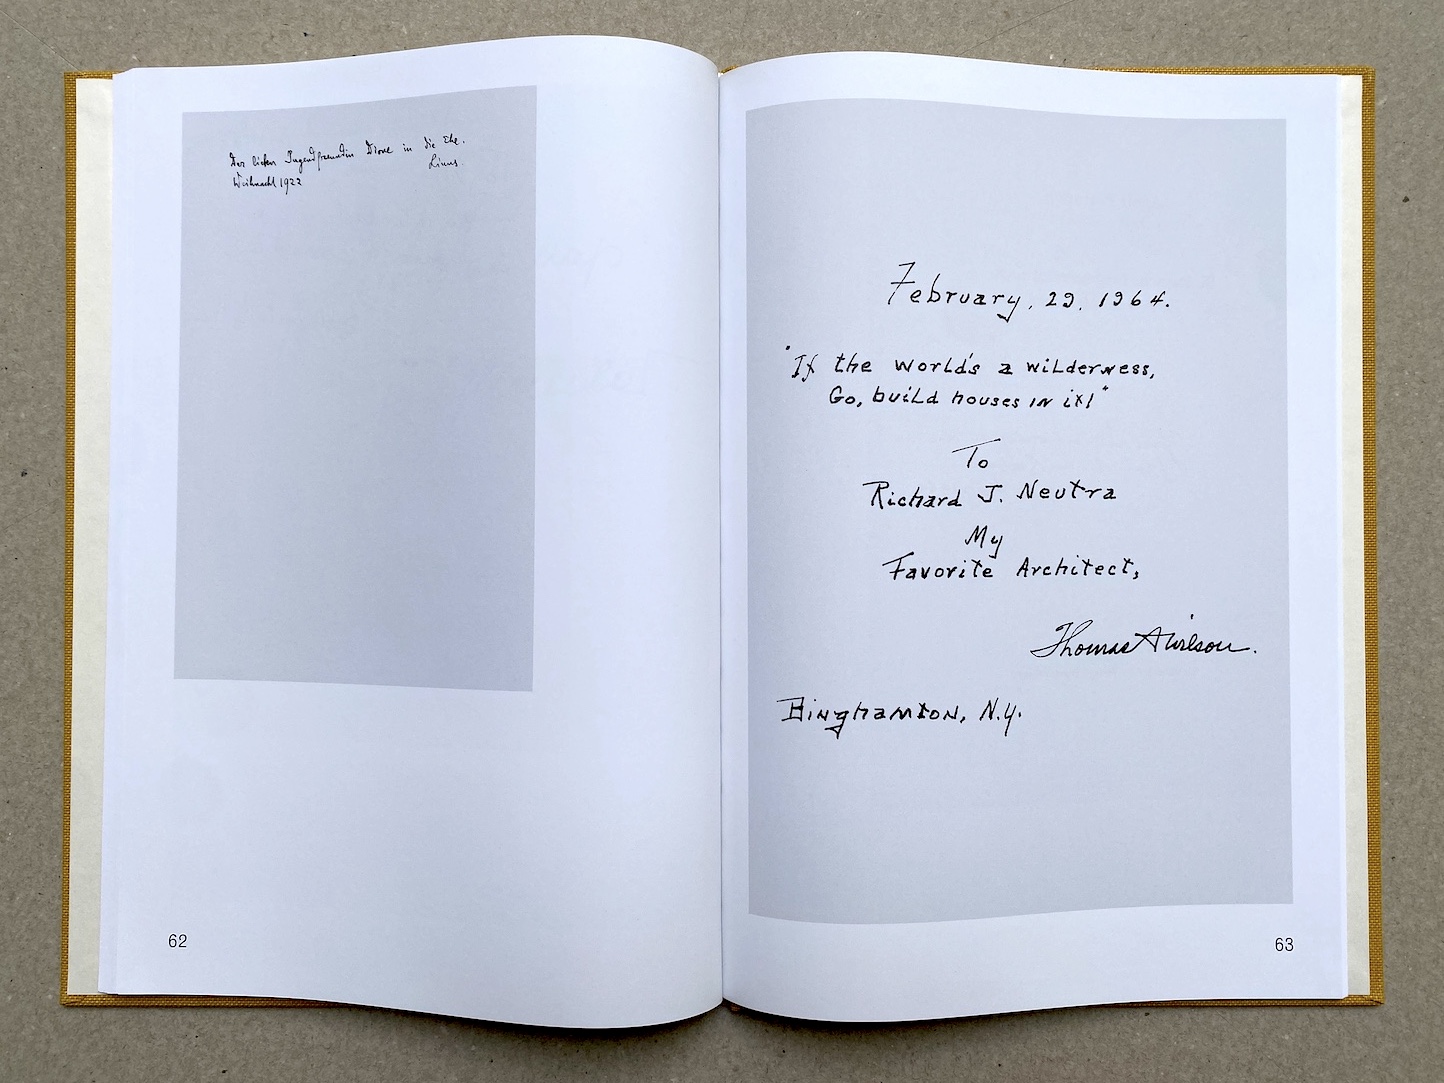 Der lieben Jugendfreundin Dione in die Ehe.
Linus.
Weihnacht 1922
62
February, 29, 1964.
"If the world's a wilderness,
Go, build houses in it!"
To
Richard J. Neutra
My
Favorite Architect,
Thomas A Wilson.
Binghamton, N.Y.
63